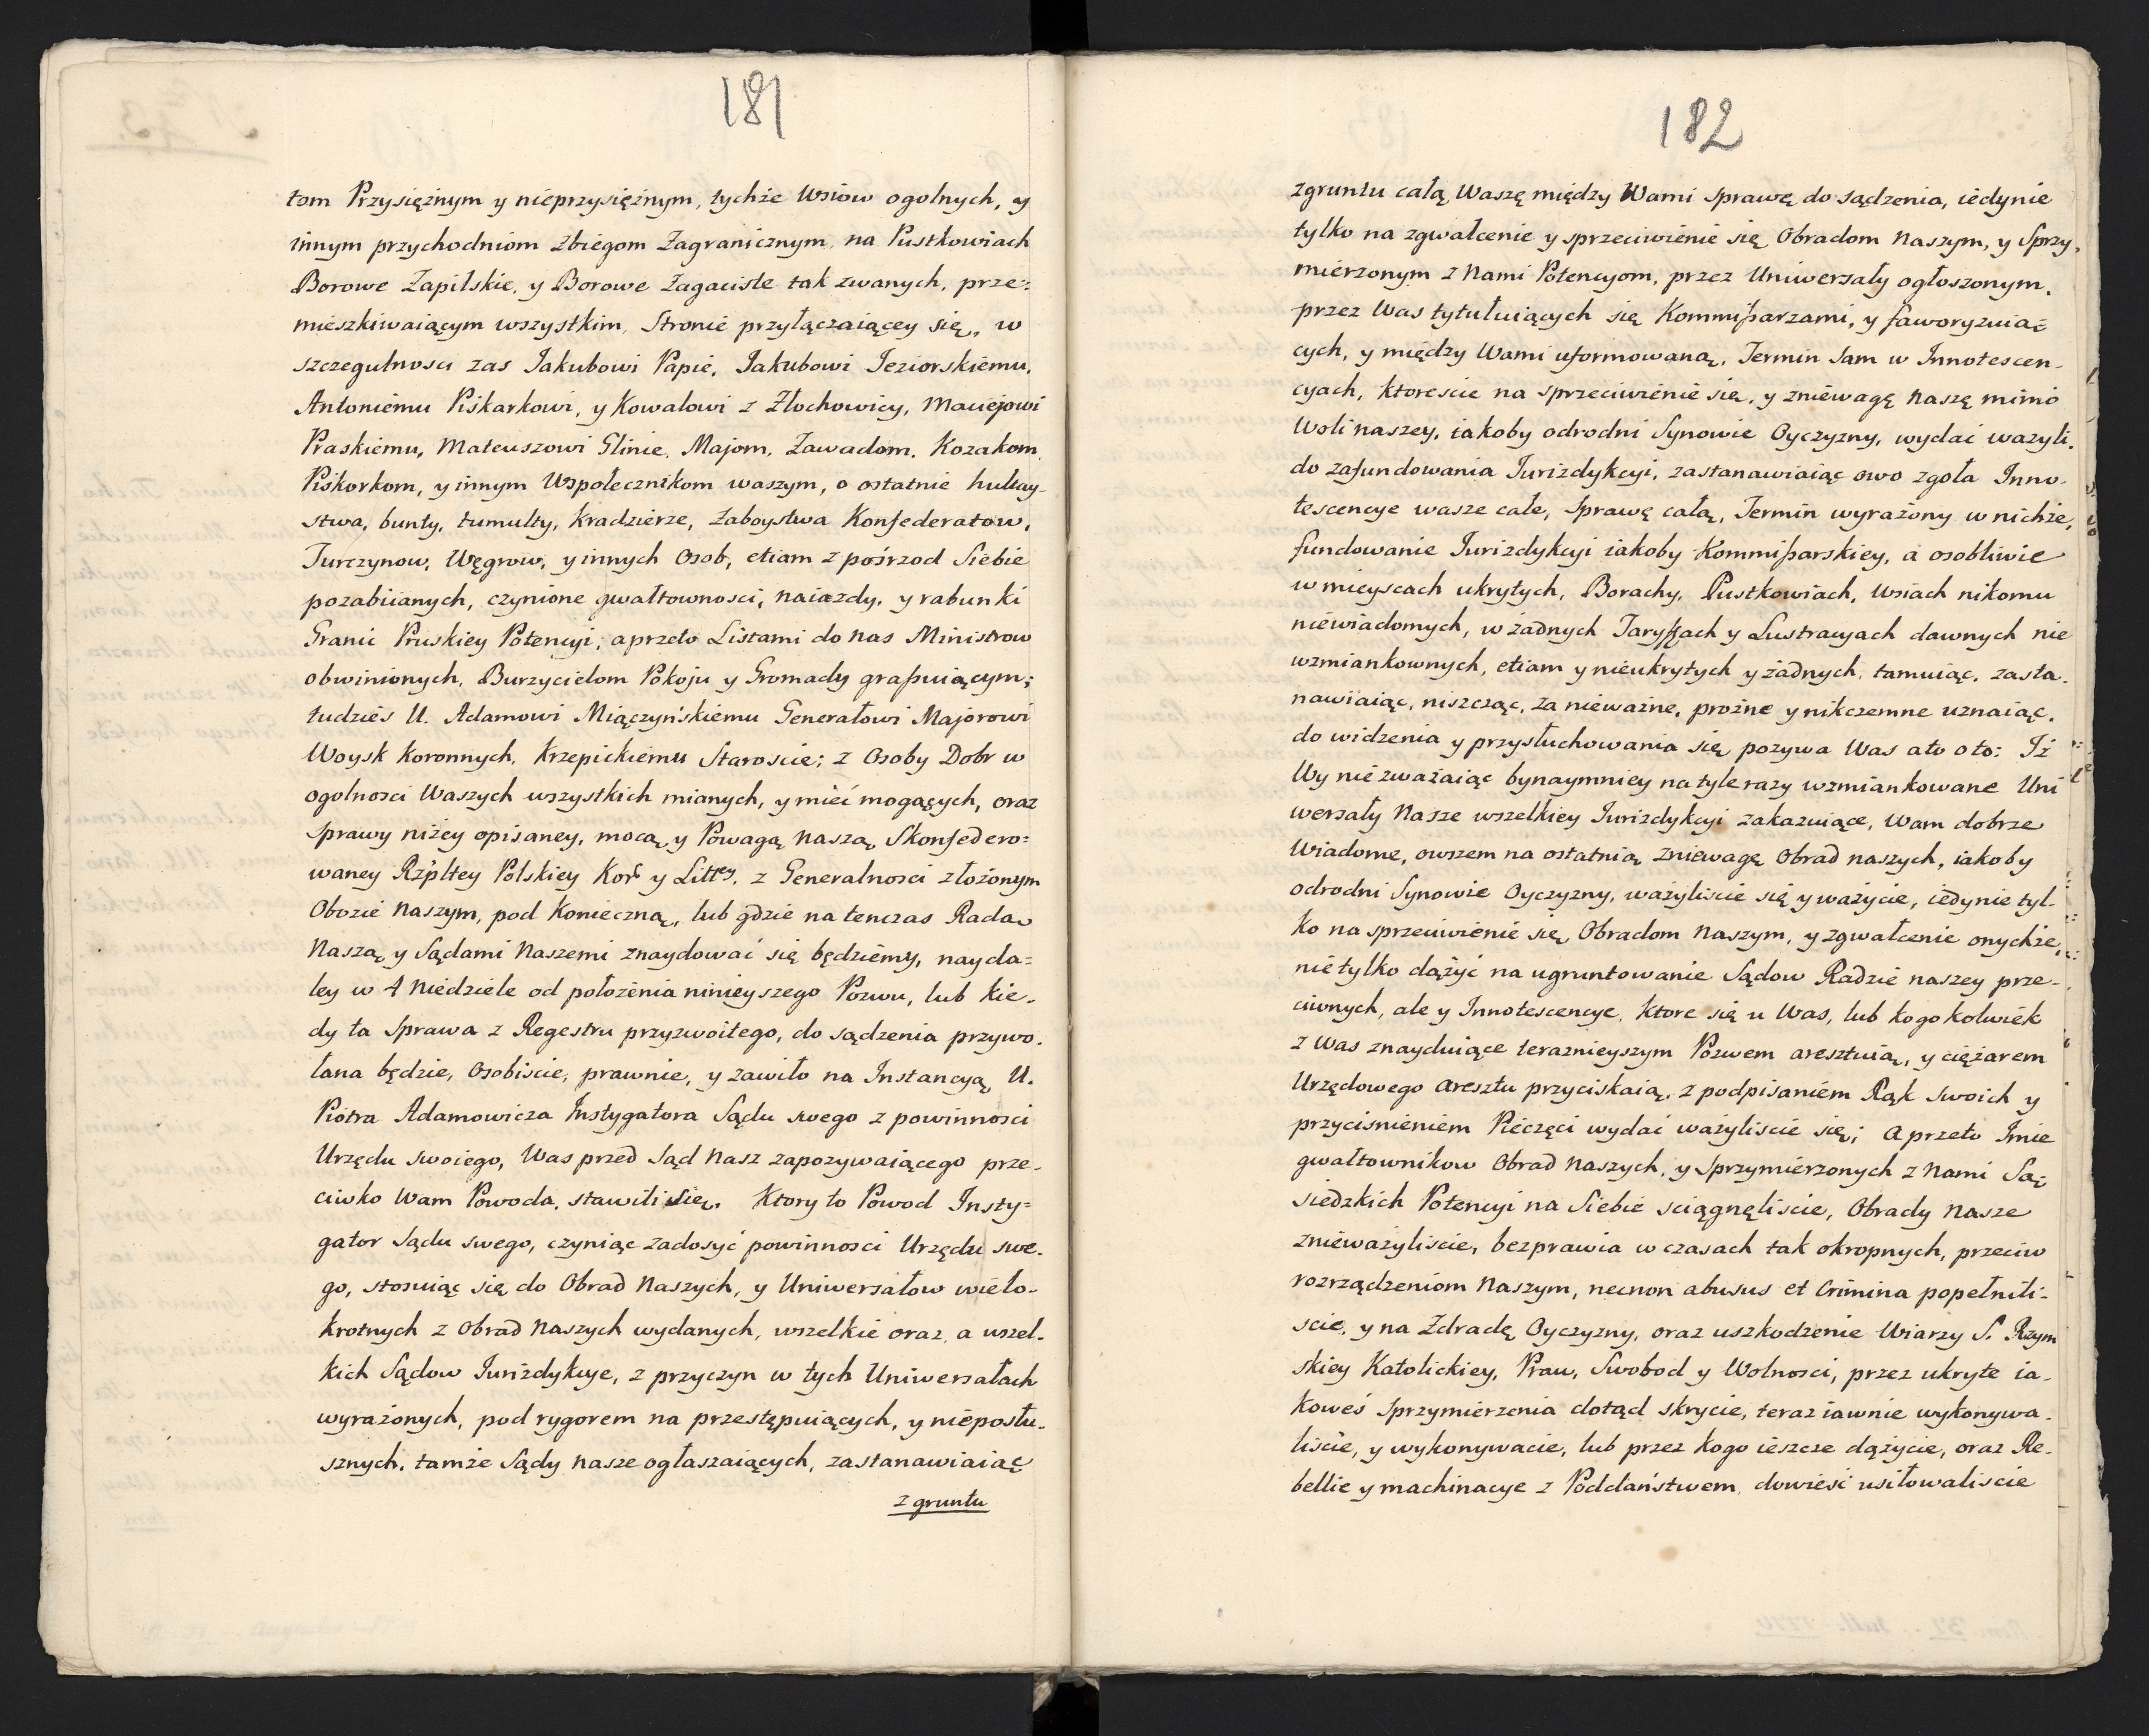 181
tom Przysięźnym y nieprzysięźnym, tychźe Wsiow ogolnych, y
innym przychodniom Zbiegom Zagranicznym, na Pustkowiach
Borowe Zapilskie, y Borowe Zagaciste tak zwanych, prze=
mieszkiwaiącym wszystkim, Stronie przyłączaiącey się, w
szczegulnosci zas Jakubowi Papie, Jakubowi Jeziorskiemu,
Antoniemu Piskarkowi, y Kowalowi z Złochowicy, Maciejowi
Praskiemu, Mateuszowi Glinie, Majom, Zawadom, Kozakom,
Piskorkom, y innym Wspołecznikom waszym, o ostatnie hultay-
stwa, bunty, tumulty, kradzierze, Zaboystwa Konfederatow,
Turczynow, Węgrow, y innych Osob, etiam z pośrzod Siebie
pozabiianych, czynione gwałtownosci, naiazdy, y rabunki
Granic Pruskiey Potencyi; a przeto Listami do nas Ministrow
obwinionych, Burzycielom Pokoju y Gromady grassuiącym;
tudzies U. Adamowi Miączyńskiemu Generałowi Majorowi
Woysk Koronnych, Krzepickiemu Staroscie; z Osoby Dobr w
ogolnosci Waszych wszystkich mianych, y mieć mogących, oraz
Sprawy niźey opisaney, mocą y Powagą naszą Skonfedero=
waney Rzpltey Polskiey Kor: y Litt: z Generalnosci złoźonym
Obozie Naszym, pod Konieczną, lub gdzie na tenczas Radą
Naszą y Sądami Naszemi znaydować się będziemy, nayda=
ley w 4 Niedziele od połoźenia ninieyszego Pozwu, lub kie-
dy ta Sprawa z Regestru przyzwoitego, do sądzenia przywo-
łana będzie, Osobiscie, prawnie, y zawito na Instancyą U.
Piotra Adamowicza Instygatora Sądu swego z powinnosci
Urzędu swoiego, Was przed Sąd Nasz zapozywaiącego prze-
ciwko Wam Powoda, stawili się. Ktory to Powod Insty=
gator Sądu swego, czyniąc zadosyć powinnosci Urzędu swe-
go, stosuiąc się do Obrad Naszych, y Uniwersałow wielo-
krotnych z Obrad Naszych wydanych, wszelkie oraz, a wszel-
kich Sądow Jurizdykcye, z przyczyn w tych Uniwersałach
wyraźonych, pod rygorem na przestępuiących, y niepostu-
sznych, tamźe Sądy Nasze ogłaszaiących, zastanawiaiąc
z gruntu
182
zgruntu całą Waszę między Wami Sprawę do sądzenia, iedynie
tylko na zgwałcenie y sprzeciwienie się Obradom Naszym, y Sprzy-
mierzonym z Nami Potencyom, przez Uniwersały ogłoszonym,
przez Was tytułuiących się Kommissarzami, y faworyzuią=
cych, y między Wami uformowaną, Termin Sam w Innotescen-
cyach, ktorescie na sprzeciwienie się, y zniewagę Naszę mimo
Woli naszey, iakoby odrodni Synowie Oyczyzny, wydać wazyli,
do zafundowania Jurizdykcyi, zastanawiaiąc owo zgoła Inno-
tescencye wasze całe, Sprawę całą, Termin wyraźony w nichźe,
fundowanie Jurizdykcyi iakoby Kommissarskiey, a osobliwie
w mieyscach ukrytych, Borachy, Pustkowiach, Wsiach nikomu
niewiadomych, w źadnych Taryffach y Lustracyach dawnych nie
wzmiankownych, etiam y nieukrytych y źadnych, tamuiąc, zasta-
nawiaiąc, niszcząc, za niewaźne, prożne y nikczemne uznaiąc,
do widzenia y przysłuchowania się pozywa Was ato oto: Iź
Wy nie zwaźaiąc bynaymniey na tyle razy wzmiankowane Uni
wersały Nasze wszelkiey Jurizdykcyi zakazuiące, Wam dobrze
Wiadome, owszem na ostatnią zniewagę Obrad naszych, iakoby
odrodni Synowie Oyczyzny, waźyliscie się y waźycie, iedynie tyl-
ko na sprzeciwienie się Obradom Naszym, y zgwałcenie onychźe,
nie tylko dąźyć na ugruntowanie Sądow Radzie naszey prze-
ciwnych, ale y Innotescencye, ktore się u Was, lub kogo kolwiek
z Was znayduiące teraznieyszym Pozwem aresztuią, y cięźarem
Urzędowego aresztu przyciskaią, z podpisaniem Rąk Swoich y
przycisnieniem Pieczęci wydać waźyliscie się; a przeto Imie
gwałtownikow Obrad Naszych, y Sprzymierzonych z Nami Są=
siedzkich Potencyi na Siebie sciągnęliscie, Obrady Nasze
zniewaźyliscie, bezprawia w czasach tak okropnych, przeciw
rozrządzeniom Naszym, necnon abusus et Crimina popełnili-
scie, y na Zdradę Oyczyzny, oraz uszkodzenie Wiary S. Rzym
skiey Katolickiey, Praw, Swobod y Wolnosci, przez ukryte ia-
koweś Sprzymierzenia dotąd skrycie, teraz iawnie wykonywa-
liscie, y wykonywacie, lub przez kogo ieszcze dąźycie, oraz Re-
bellie y machinacye z Poddaństwem, dowieść usiłowaliscie